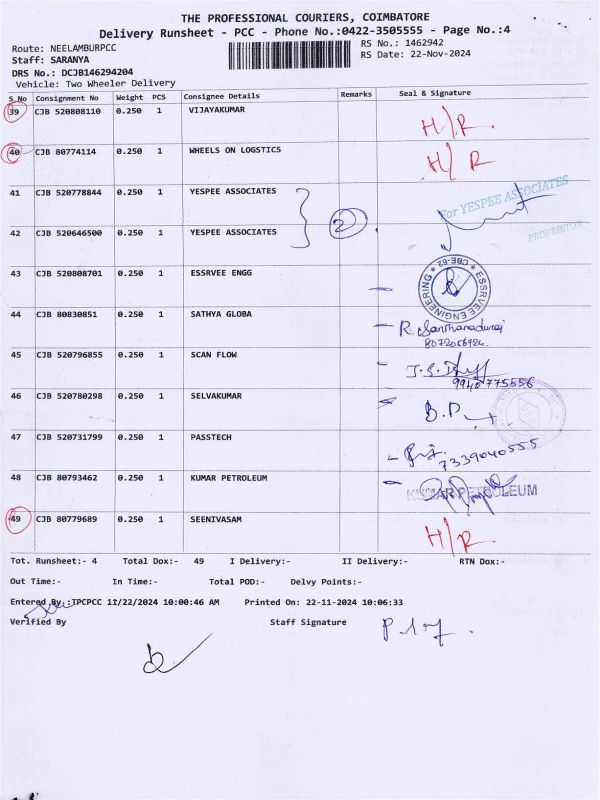 THE PROFESSIONAL COURIERS, COIMBATORE
Delivery Runsheet - PCC - Phone No.:0422-3505555 - Page No.:4
Route: NEELAMBURPCC RS No.: 1462942
Staff: SARANYA RS Date: 22-Nov-2024
DRS No.: DCJB146294204
Vehicle: Two Wheeler Delivery
S.No Consignment No Weight PCS Consignee Details Remarks Seal & Signature
39 CJB 520808110 0.250 1 VIJAYAKUMAR H/R.
40 CJB 80774114 0.250 1 WHEELS ON LOGSTICS H/R
41 CJB 520778844 0.250 1 YESPEE ASSOCIATES For YESPEE ASSOCIATES
2
42 CJB 520646500 0.250 1 YESPEE ASSOCIATES PROPRIETOR
43 CJB 520808701 0.250 1 ESSRVEE ENGG ESSRVEE ENGINEERING CBE-62
44 CJB 80830851 0.250 1 SATHYA GLOBA
45 CJB 520796855 0.250 1 SCAN FLOW
9940775556
46 CJB 520780298 0.250 1 SELVAKUMAR
47 CJB 520731799 0.250 1 PASSTECH
7339040555
48 CJB 80793462 0.250 1 KUMAR PETROLEUM KUMAR PETROLEUM
49 CJB 80779689 0.250 1 SEENIVASAM H/R
Tot. Runsheet:- 4 Total Dox:- 49 I Delivery:- II Delivery:- RTN Dox:-
Out Time:- In Time:- Total POD:- Delvy Points:-
Entered By: TPCPCC 11/22/2024 10:00:46 AM Printed On: 22-11-2024 10:06:33
Verified By Staff Signature